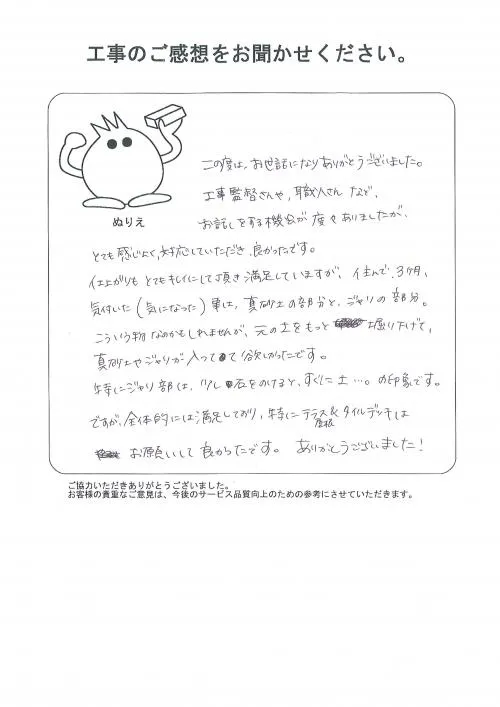 工事のご感想をお聞かせください。
ぬりえ
この度は、お世話になりありがとうございました。
工事監督さんや、職人さんなど、
お話しをする機会が度々ありましたが、
とても感じよく、対応していただき、良かったです。
仕上がりもとてもキレイにして頂き満足していますが、住んで、3ヶ月、
気付いた(気になった)事は、真砂土の部分と、ジャリの部分。
こういう物なのかもしれませんが、元の土をもっと掘り下げて、
真砂土やジャリが入ってて欲しかったです。
特にジャリ部は、少し石をのけると、すぐに土…。の印象です。
ですが、全体的には満足しており、特にテラス&タイルデッキは
屋根
お願いして良かったです。ありがとうございました!
ご協力いただきありがとうございました。
お客様の貴重なご意見は、今後のサービス品質向上のための参考にさせていただきます。